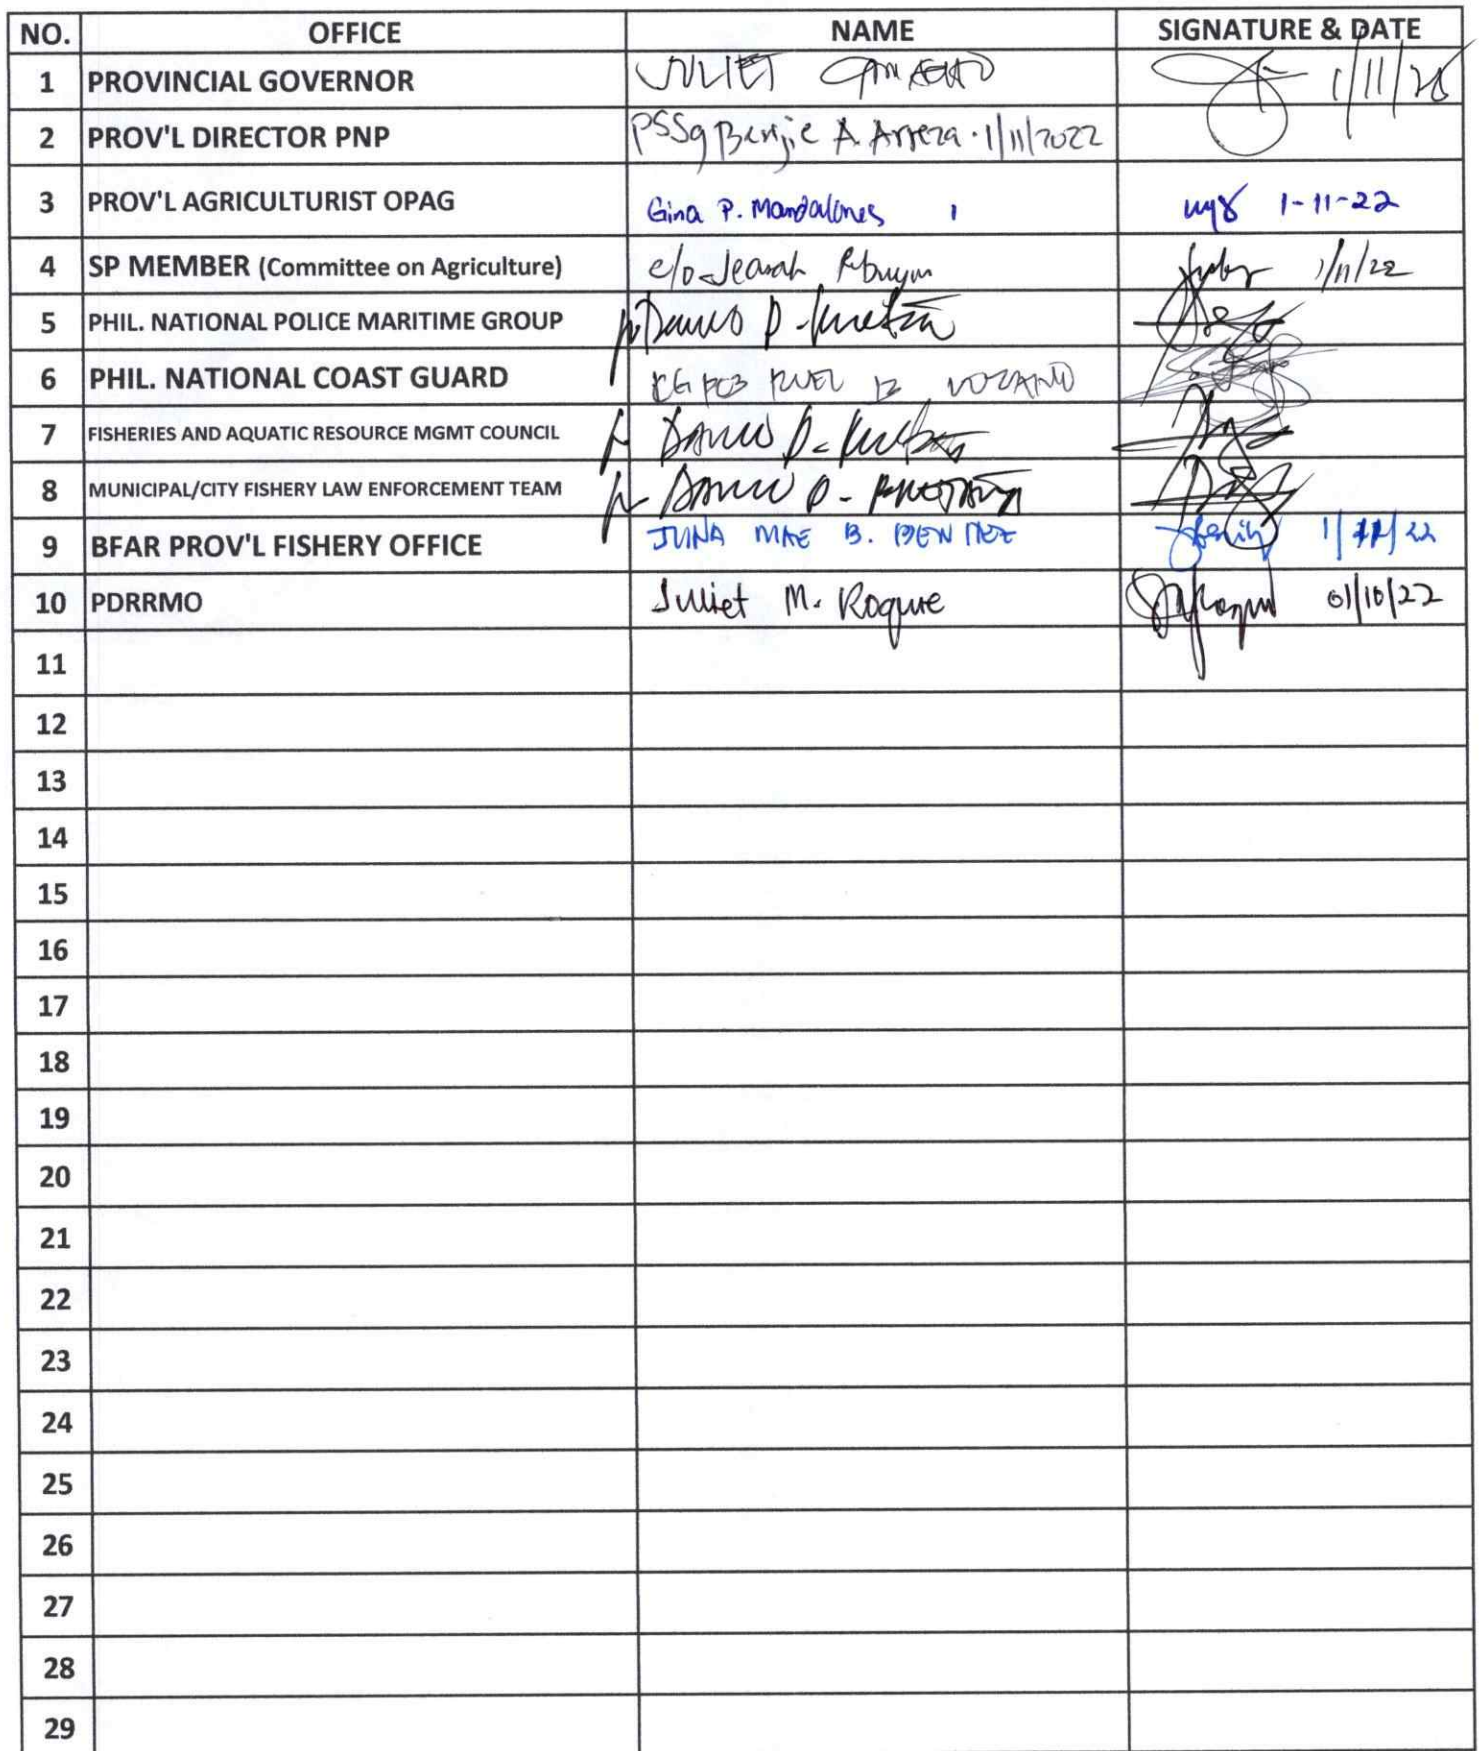 NO. OFFICE NAME SIGNATURE & DATE
1 PROVINCIAL GOVERNOR JULIET 1/11/
2 PROV'L DIRECTOR PNP PSSg Benjie A. Arreza 1/11/2022
3 PROV'L AGRICULTURIST OPAG Gina P. Mandalones 1-11-22
4 SP MEMBER (Committee on Agriculture) c/o 1/11/22
5 PHIL. NATIONAL POLICE MARITIME GROUP
6 PHIL. NATIONAL COAST GUARD
7 FISHERIES AND AQUATIC RESOURCE MGMT COUNCIL
8 MUNICIPAL/CITY FISHERY LAW ENFORCEMENT TEAM
9 BFAR PROV'L FISHERY OFFICE JUNA MAE B. 1/11/22
10 PDRRMO Juliet M. Roque 01/10/22
11
12
13
14
15
16
17
18
19
20
21
22
23
24
25
26
27
28
29